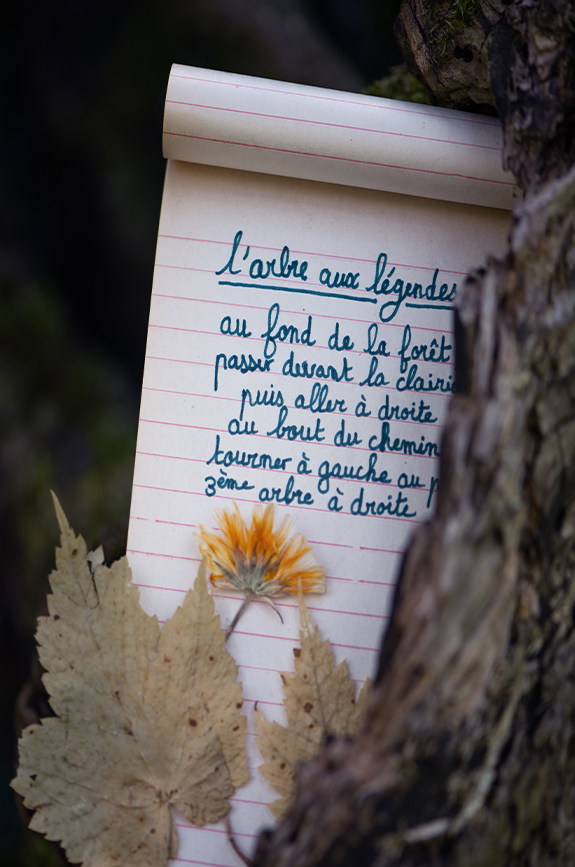 l'arbre aux légendes
au fond de la forêt
passer devant la
puis aller à droite
au bout du chemin
tourner à gauche au
3ème arbre à droite